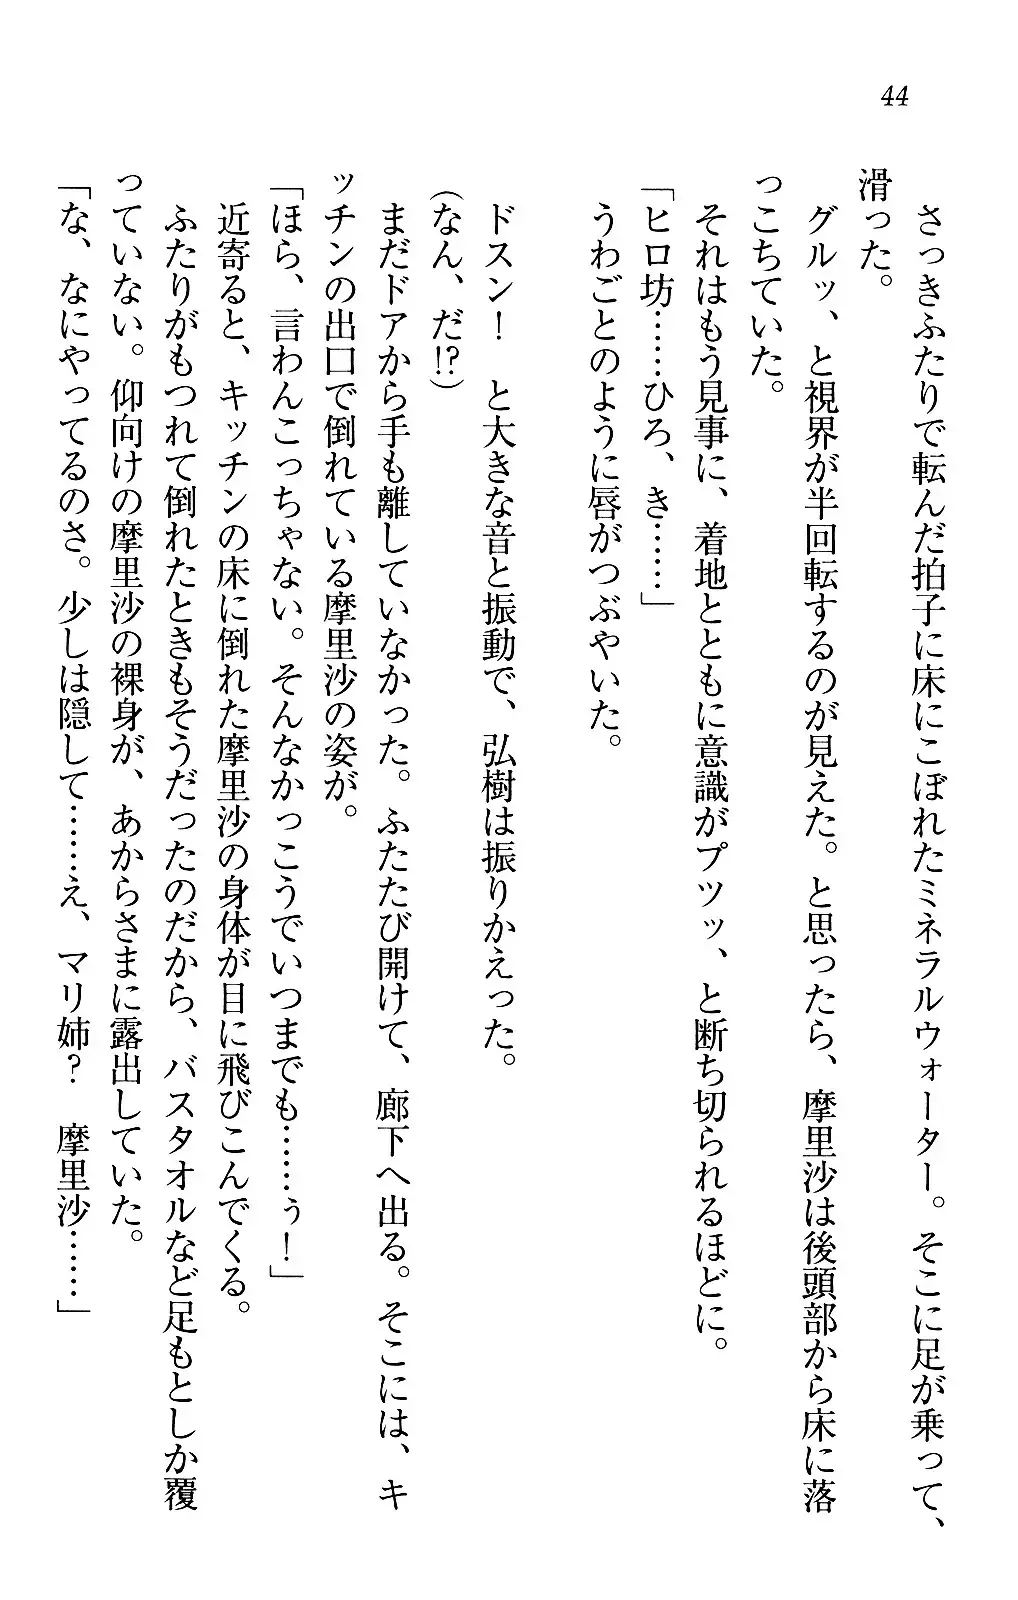 44
　さっきふたりで転んだ拍子に床にこぼれたミネラルウォーター。そこに足が乗って、
滑った。
　グルッ、と視界が半回転するのが見えた。と思ったら、摩里沙は後頭部から床に落
っこちていた。
　それはもう見事に、着地とともに意識がプツッ、と断ち切られるほどに。
「ヒロ坊……ひろ、き……」
　うわごとのように唇がつぶやいた。
　ドスン！　と大きな音と振動で、弘樹は振りかえった。
（なん、だ!?）
　まだドアから手も離していなかった。ふたたび開けて、廊下へ出る。そこには、キ
ッチンの出口で倒れている摩里沙の姿が。
「ほら、言わんこっちゃない。そんなかっこうでいつまでも……ぅ！」
　近寄ると、キッチンの床に倒れた摩里沙の身体が目に飛びこんでくる。
　ふたりがもつれて倒れたときもそうだったのだから、バスタオルなど足もとしか覆
っていない。仰向けの摩里沙の裸身が、あからさまに露出していた。
「な、なにやってるのさ。少しは隠して……え、マリ姉？　摩里沙……」